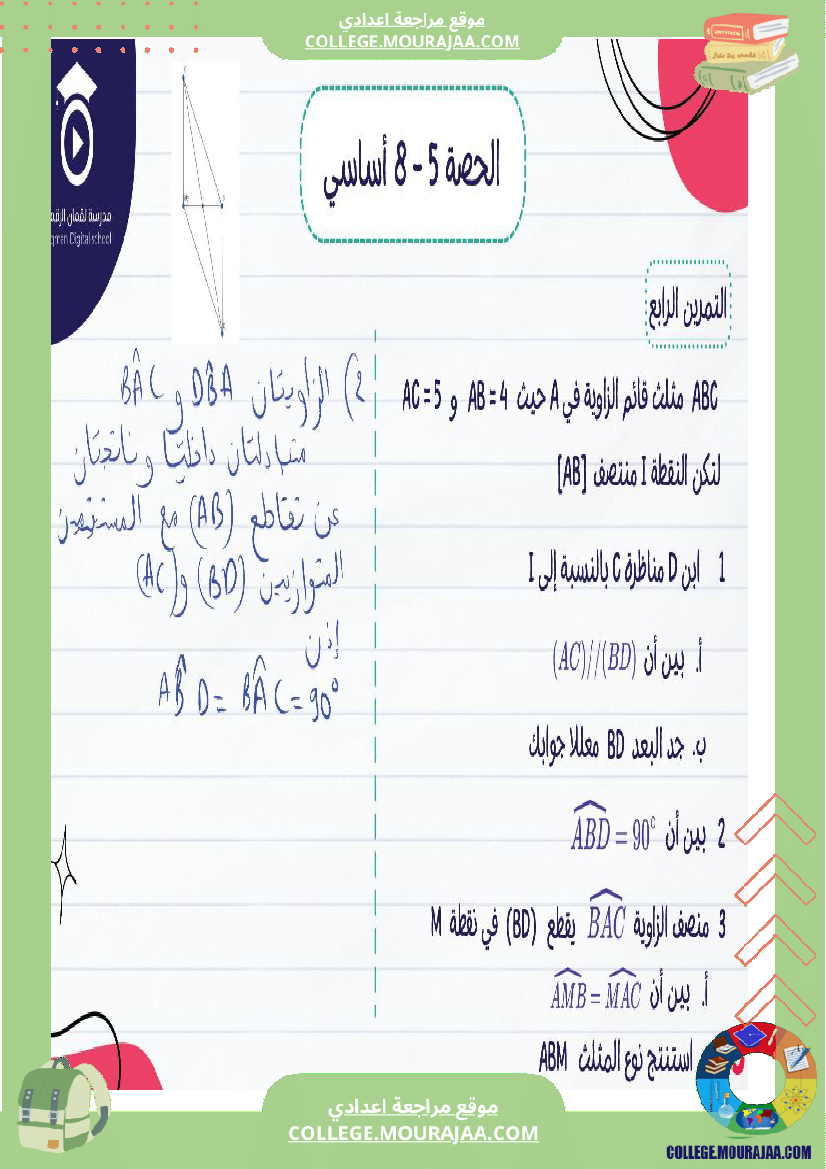 موقع مراجعة اعدادي
COLLEGE.MOURAJAA.COM
الحصة 5 - 8 أساسي
مدرسة لقمان الرقم
qman Digital school
التمرين الرابع
ABC مثلث قائم الزاوية في A حيث AB = 4 و AC = 5
لتكن النقطة I منتصف [AB]
1 ابن D مناظرة C بالنسبة إلى I
أ. بين أن (AC)//(BD)
ب. جد البعد BD معللا جوابك
2 بين أن \widehat{ABD} = 90°
3 منصف الزاوية \widehat{BAC} يقطع (BD) في نقطة M
أ. بين أن \widehat{AMB} = \widehat{MAC}
استنتج نوع المثلث ABM
2) الزاويتان DB̂A و BÂC
متبادلتان داخليا وناتجتان
عن تقاطع (AB) مع المستقيمين
المتوازيين (BD) و(AC)
إذن
AB̂D = BÂC = 90°
موقع مراجعة اعدادي
COLLEGE.MOURAJAA.COM
COLLEGE.MOURAJAA.COM